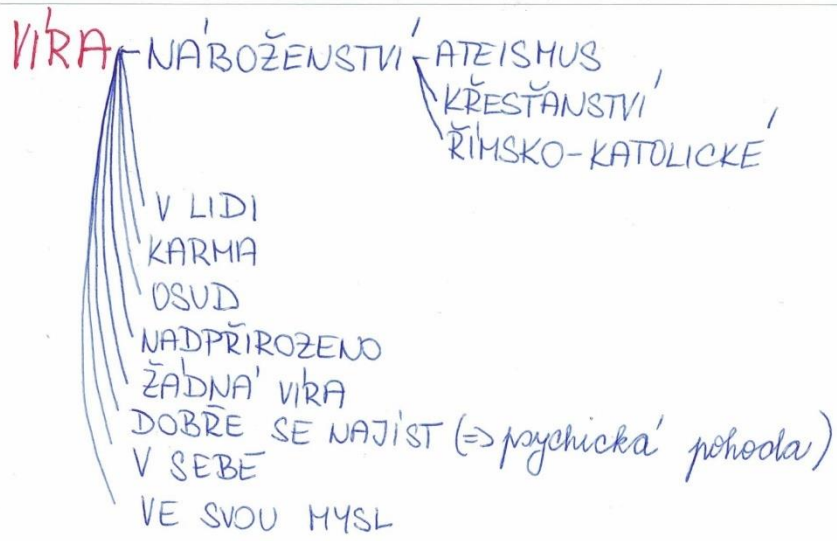 VÍRA - NÁBOŽENSTVÍ - ATEISMUS
KŘESŤANSTVÍ
ŘÍMSKO-KATOLICKÉ
V LIDI
KARMA
OSUD
NADPŘIROZENO
ŽÁDNÁ VÍRA
DOBŘE SE NAJÍST (=> psychická pohoda)
V SEBE
VE SVOU MYSL